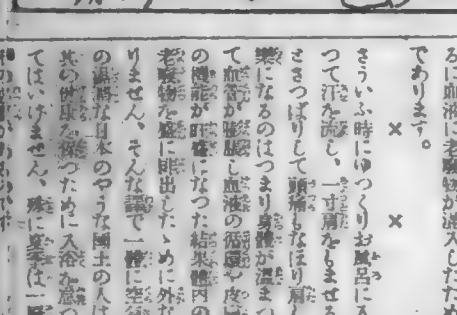 るに血液に老廢物が混入したため
であります。
× ×
さういふ時にゆつくりお風呂に入
つて汗を流し、一寸肩をもませる
とさつぱりして頭痛もなほり肩も
樂になるのはつまり身體が溫まつ
て血管が膨脹し血液の循環や皮膚
の機能が旺盛になつた結果體内の
老廢物を盛に排出したゝめに外な
りません、そんな譯で一體に空氣
の濕潤な日本のやうな國土の人は
其の健康を保つために入浴を怠つ
てはいけません、殊に夏季は一層